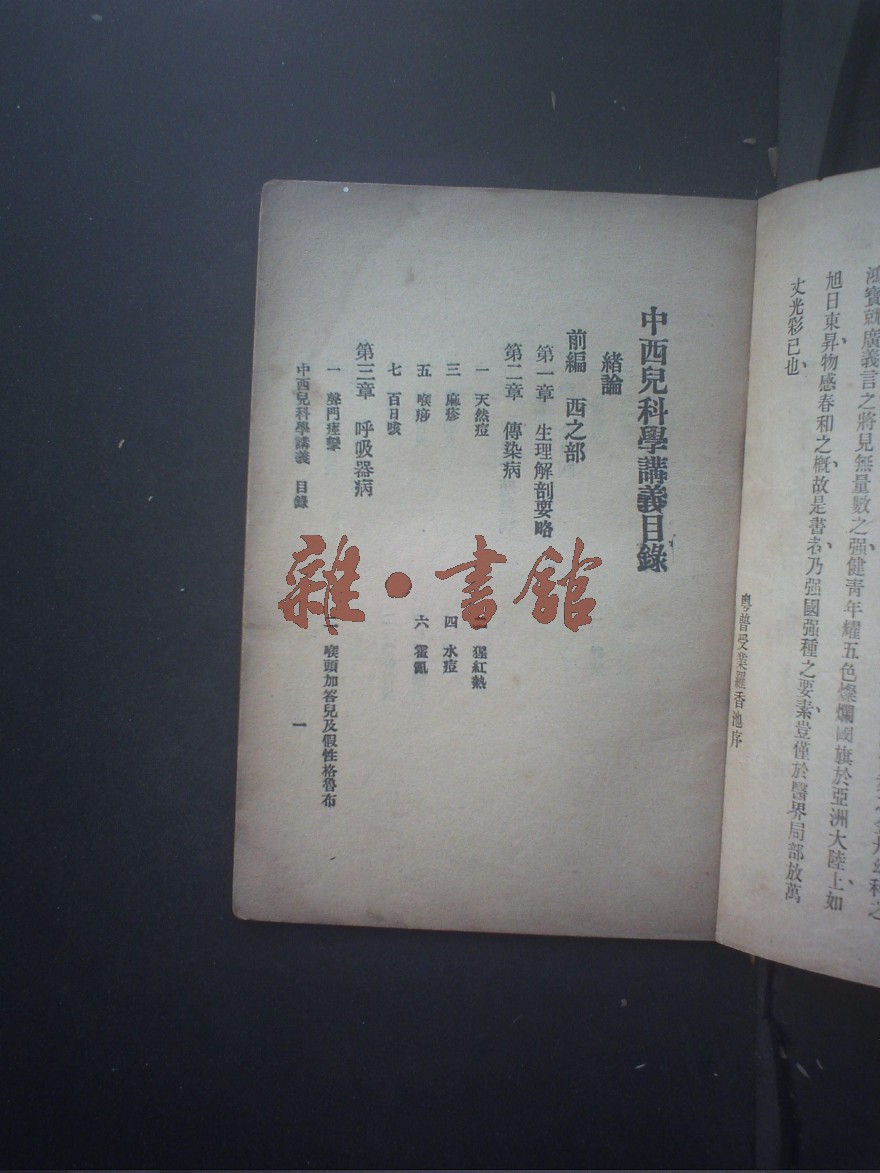 鴻寶
廣義言之將見無量數之强健靑年耀五色燦爛國旗於亞洲大陸上、如
旭日東昇、物感春和之概、故是書者、乃强國强種之要素、豈僅於醫界局部放萬
丈光彩已也、
粵普受業羅香池序
中西兒科學講義目錄
緒論
前編 西之部
第一章 生理解剖要略
第二章 傳染病
一 天然痘 二 猩紅熱
三 麻疹 四 水痘
五 喉痧 六 霍亂
七 百日咳
第三章 呼吸器病
一 聲門痙攣 二 喉頭加答兒及假性格魯布
中西兒科學講義 目錄 一
雜·書館